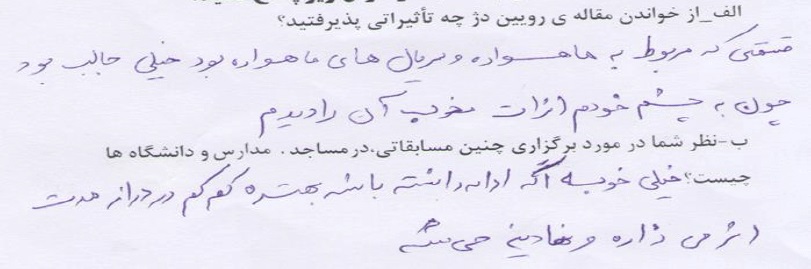 الف_از خواندن مقاله ی رویین دژ چه تأثیراتی پذیرفتید؟
قسمتی که مربوط به ماهسواره و سریال های ماهواره بود خیلی جالب بود
چون به چشم خودم اثرات مخرب آن را دیدم
ب-نظر شما در مورد برگزاری چنین مسابقاتی،در مساجد . مدارس و دانشگاه ها
چیست؟ خیلی خوبه اگه ادامه داشته باشه بهتره کم کم در دراز مدت
اثر می ذاره و نهادینه می شه